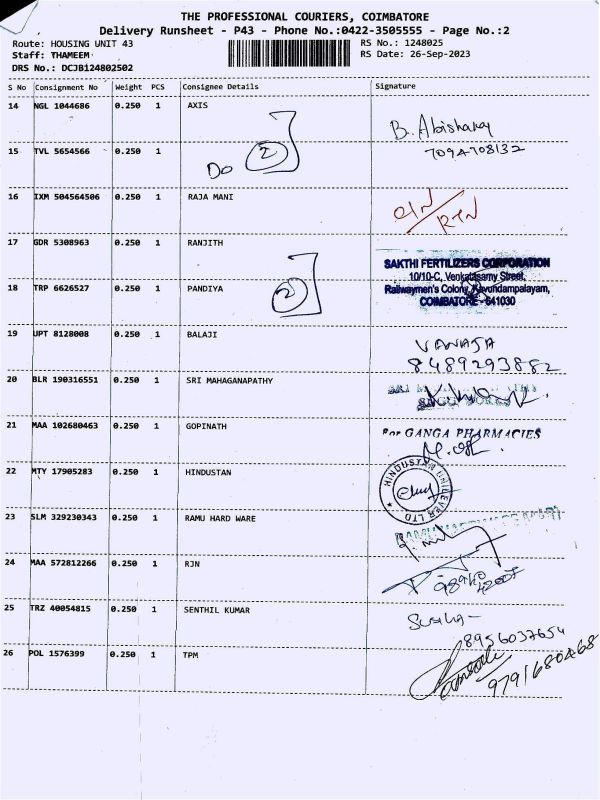 THE PROFESSIONAL COURIERS, COIMBATORE
Delivery Runsheet - P43 - Phone No.:0422-3505555 - Page No.:2
Route: HOUSING UNIT 43 RS No.: 1248025
Staff: THAMEEM RS Date: 26-Sep-2023
DRS No.: DCJB124802502
S No Consignment No Weight PCS Consignee Details Signature
14 NGL 1044686 0.250 1 AXIS
B. Abishang
15 TVL 5654566 0.250 1 Do 2 7094708132
16 IXM 504564506 0.250 1 RAJA MANI
RTN
17 GDR 5308963 0.250 1 RANJITH
SAKTHI FERTILIZERS CORPORATION
10/10-C, Venkatasamy Street,
18 TRP 6626527 0.250 1 PANDIYA 2 Railwaymen's Colony, Kavundampalayam,
COIMBATORE - 641030
19 UPT 8128008 0.250 1 BALAJI
VANAJA
8489293882
20 BLR 190316551 0.250 1 SRI MAHAGANAPATHY
21 MAA 102680463 0.250 1 GOPINATH
For GANGA PHARMACIES
22 MTY 17905283 0.250 1 HINDUSTAN
HINDUSTAN UNILEVER LTD
23 SLM 329230343 0.250 1 RAMU HARD WARE
24 MAA 572812266 0.250 1 RJN
25 TRZ 40054815 0.250 1 SENTHIL KUMAR
8956037654
26 POL 1576399 0.250 1 TPM
9791680468